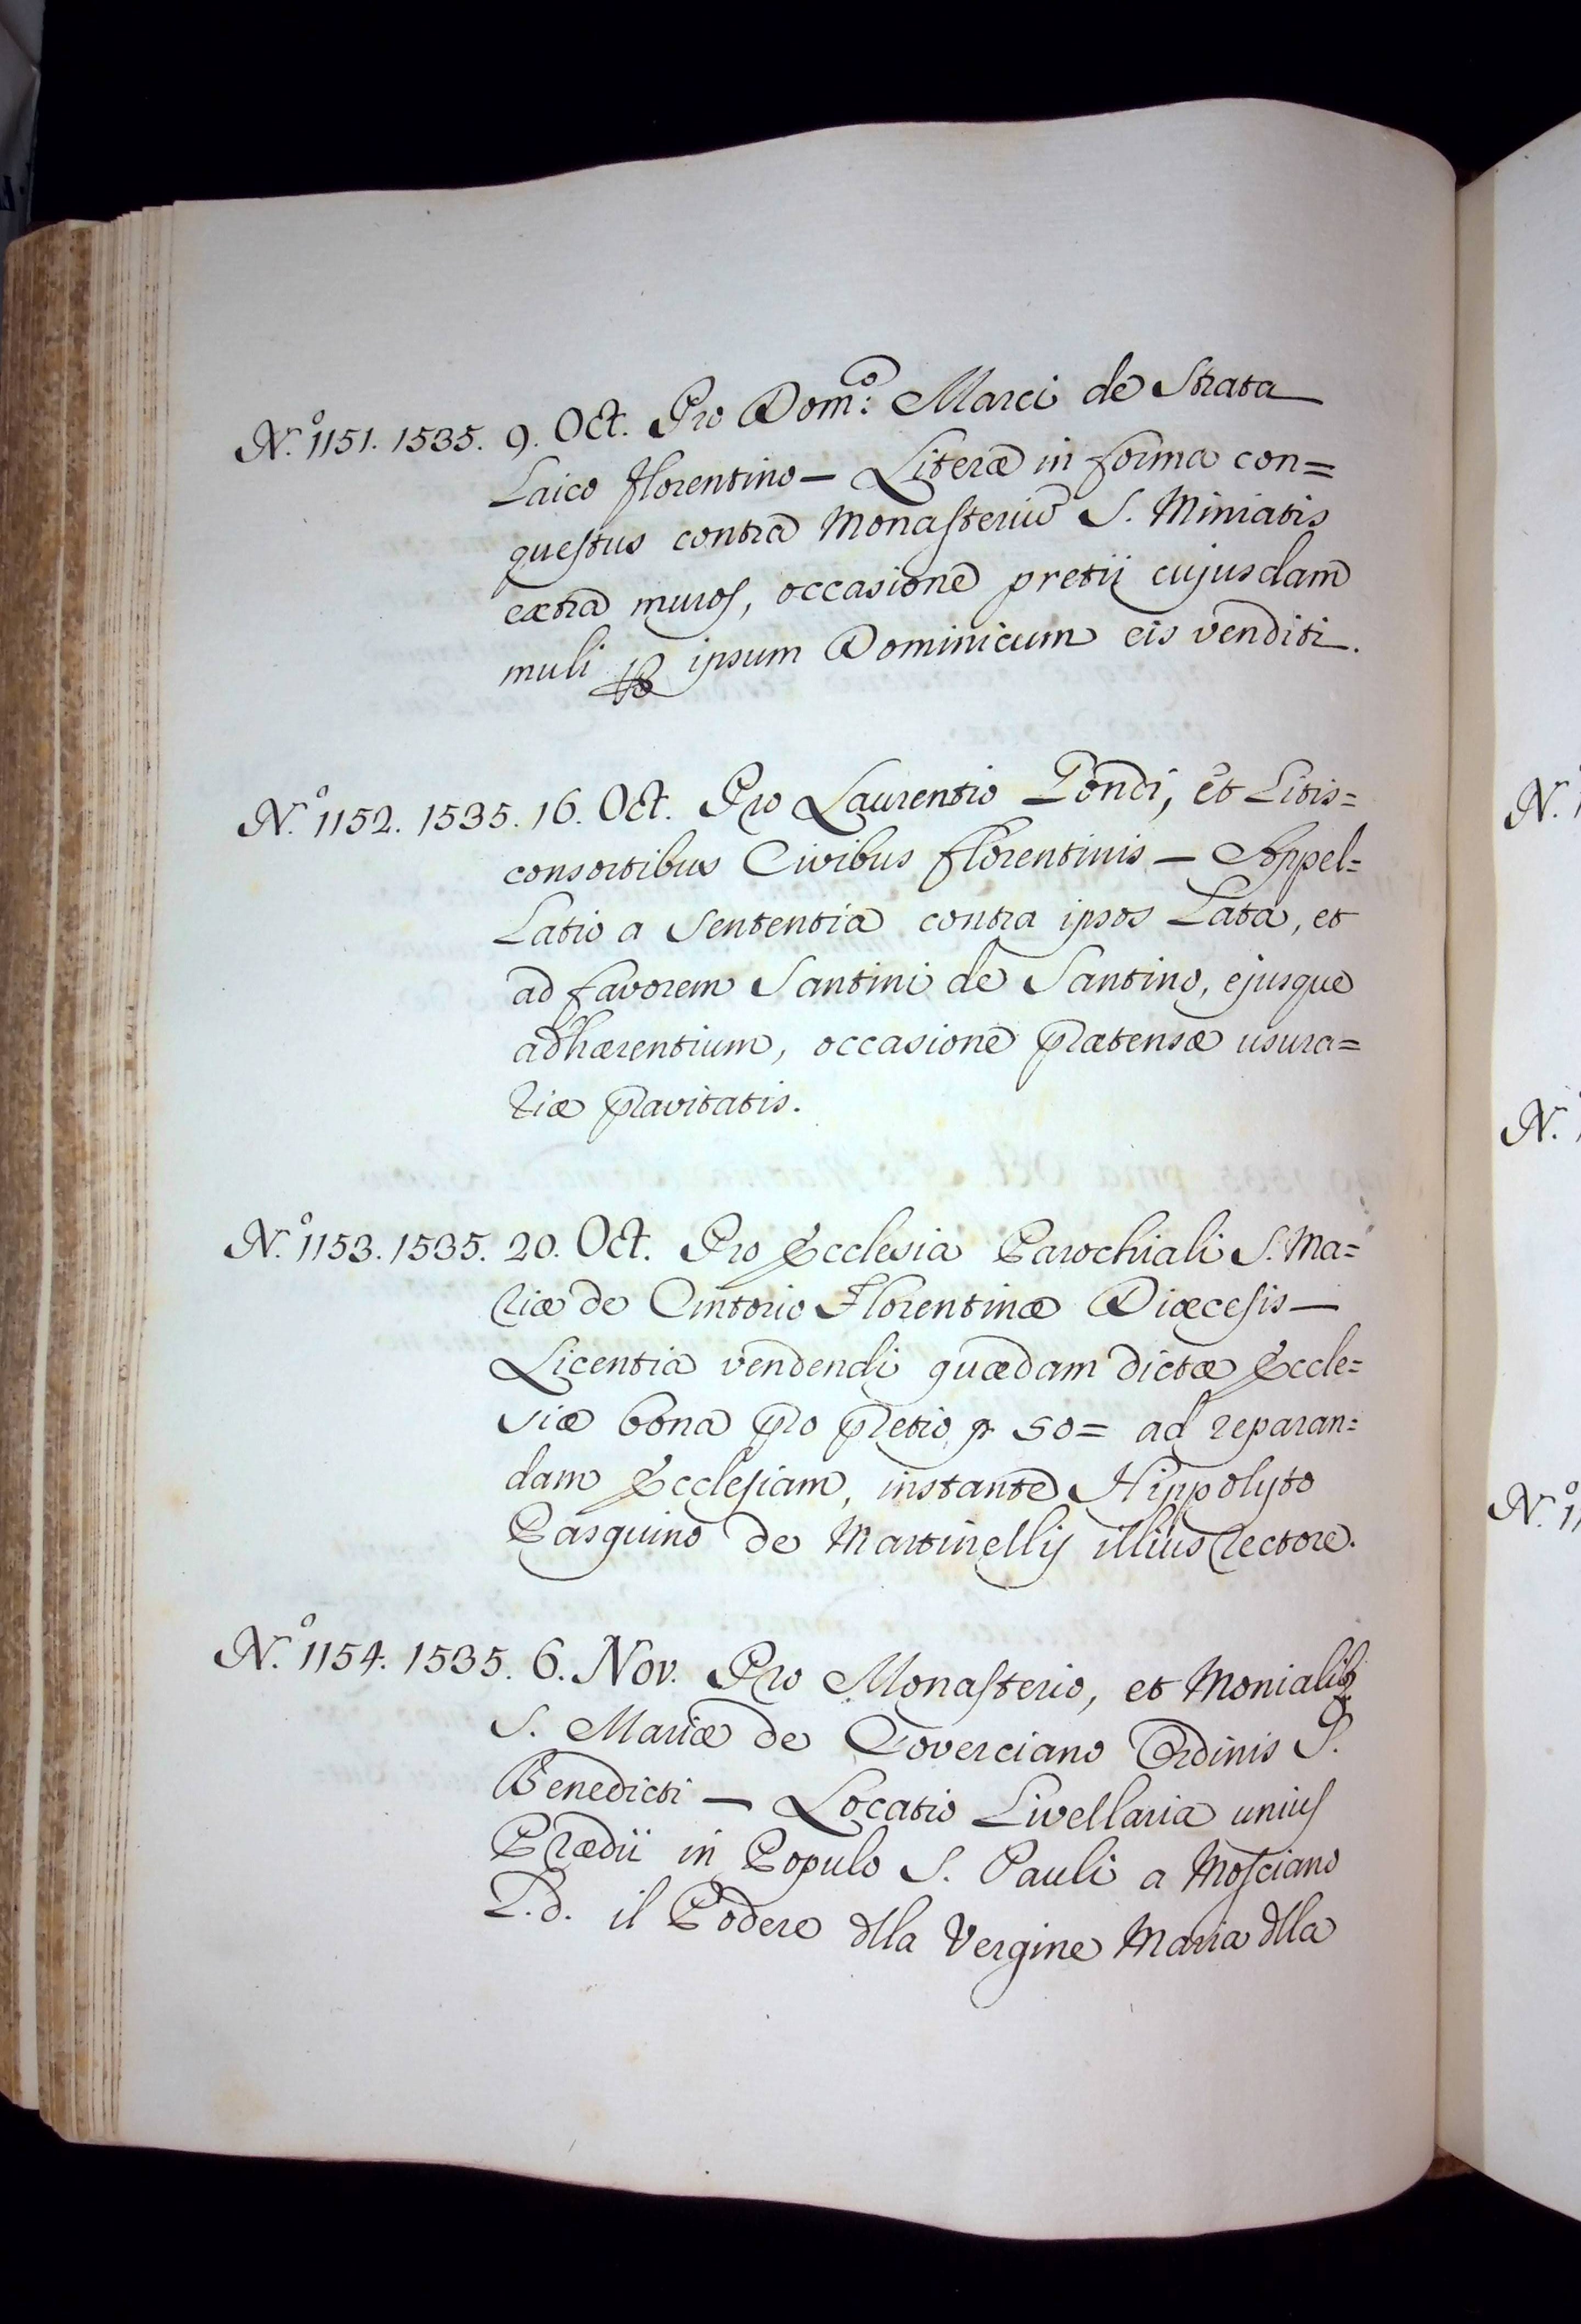 N.º 1151. 1535. 9. Oct. Pro Dom.º Marci de Strata
Laico Florentino — Literæ in forma con=
questus contra Monasteriũ S. Miniatis
extra muros, occasione pretii cujusdam
muli ꝑ ipsum Dominicum eis venditi.
N.º 1152. 1535. 16. Oct. Pro Laurentio et Litis=
consortibus Civibus Florentinis — Appel=
latio a Sententia contra ipsos Lata, et
ad favorem Santini de Santino, ejusque
adhærentium, occasione prætensæ usura=
riæ pravitatis.
N.º 1153. 1535. 20. Oct. Pro Ecclesia Parochiali S. Ma=
riæ de Cintorio Florentinæ Diœcesis —
Licentia vendendi quædam dictæ Eccle=
siæ bona pro pretio 50= ad reparan=
dam Ecclesiam, instante Hippolyto
Pasquino de Martinellij illius rectore.
N.º 1154. 1535. 6. Nov. Pro Monasterio, et Monialibꝫ
S. Mariæ de Coverciano Ordinis S.
Benedicti — Locatio Livellaria unius
Prædii in Populo S. Pauli a Mosciano
L.d. il Podere dlla Vergine Maria dlla
N.
N.
N.º 1